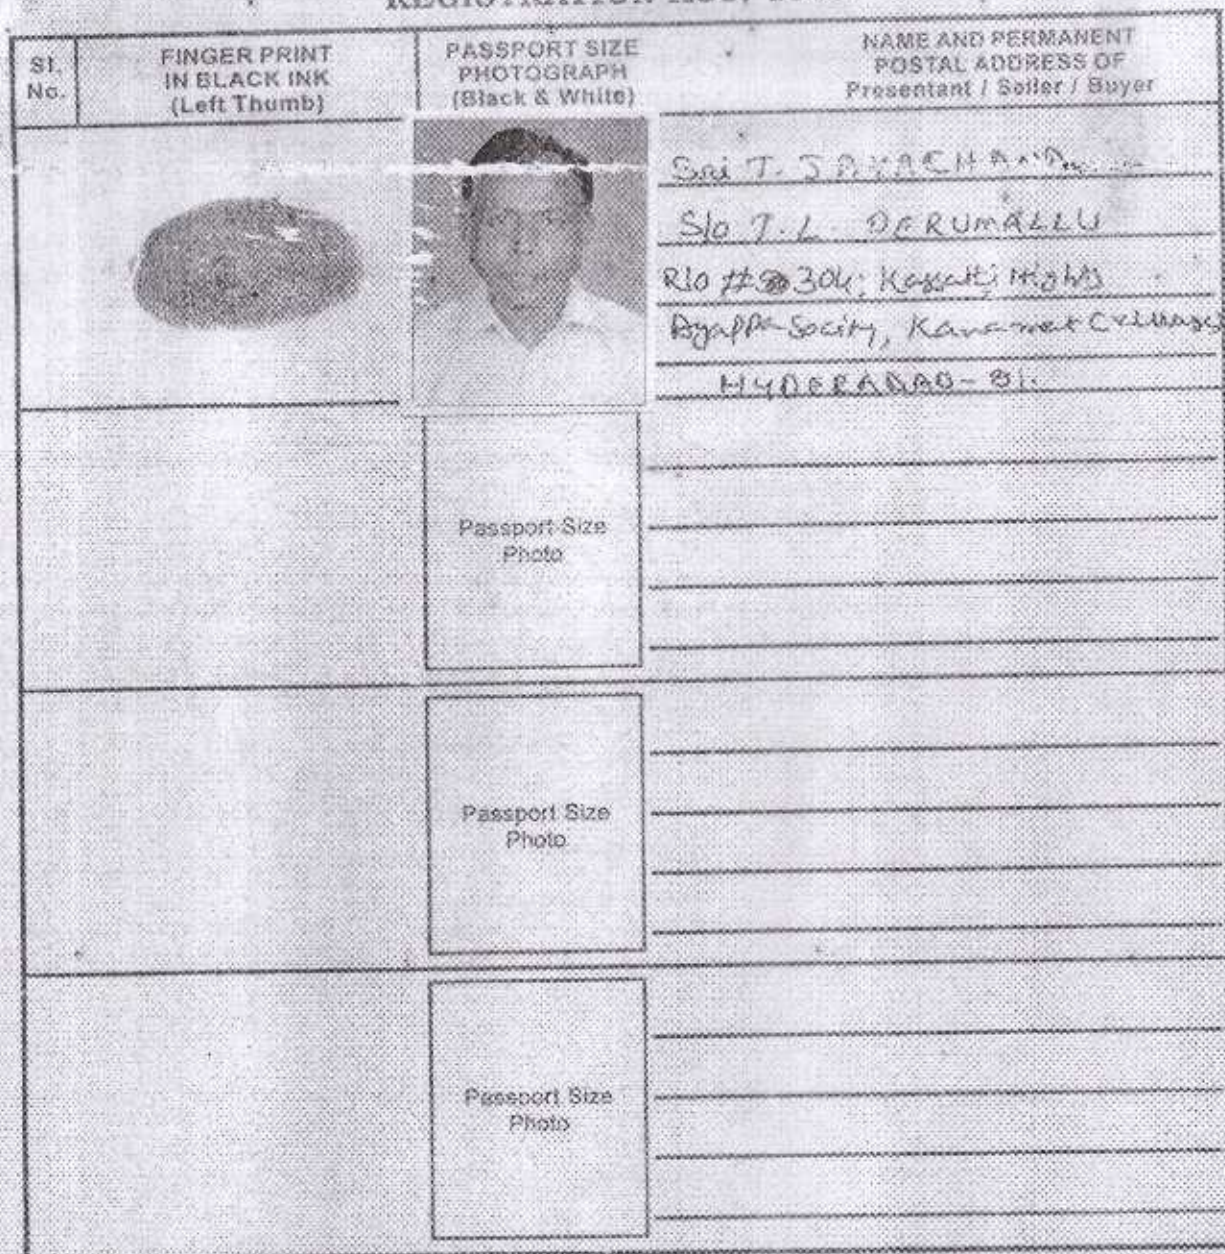 Sl.
No.
FINGER PRINT
IN BLACK INK
(Left Thumb)
PASSPORT SIZE
PHOTOGRAPH
(Black & White)
NAME AND PERMANENT
POSTAL ADDRESS OF
Presentant / Seller / Buyer
Sri T.
S/o T. L. PERUMALLU
R/o # 304,
Ayappa Socity,
HYDERABAD - 81.
Passport Size
Photo
Passport Size
Photo
Passport Size
Photo